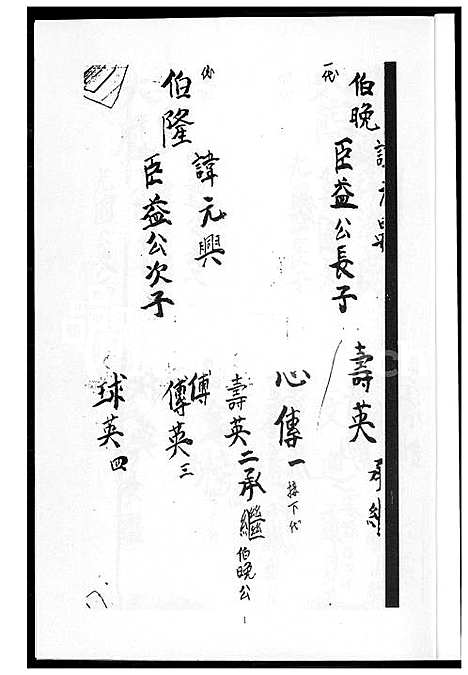 一代
伯晚
臣益公長子
壽英 承繼
代
伯隆 諱元興
臣益公次子
心傳一 接下代
壽英二承繼伯晚公
傳
傳英三
球英四
1